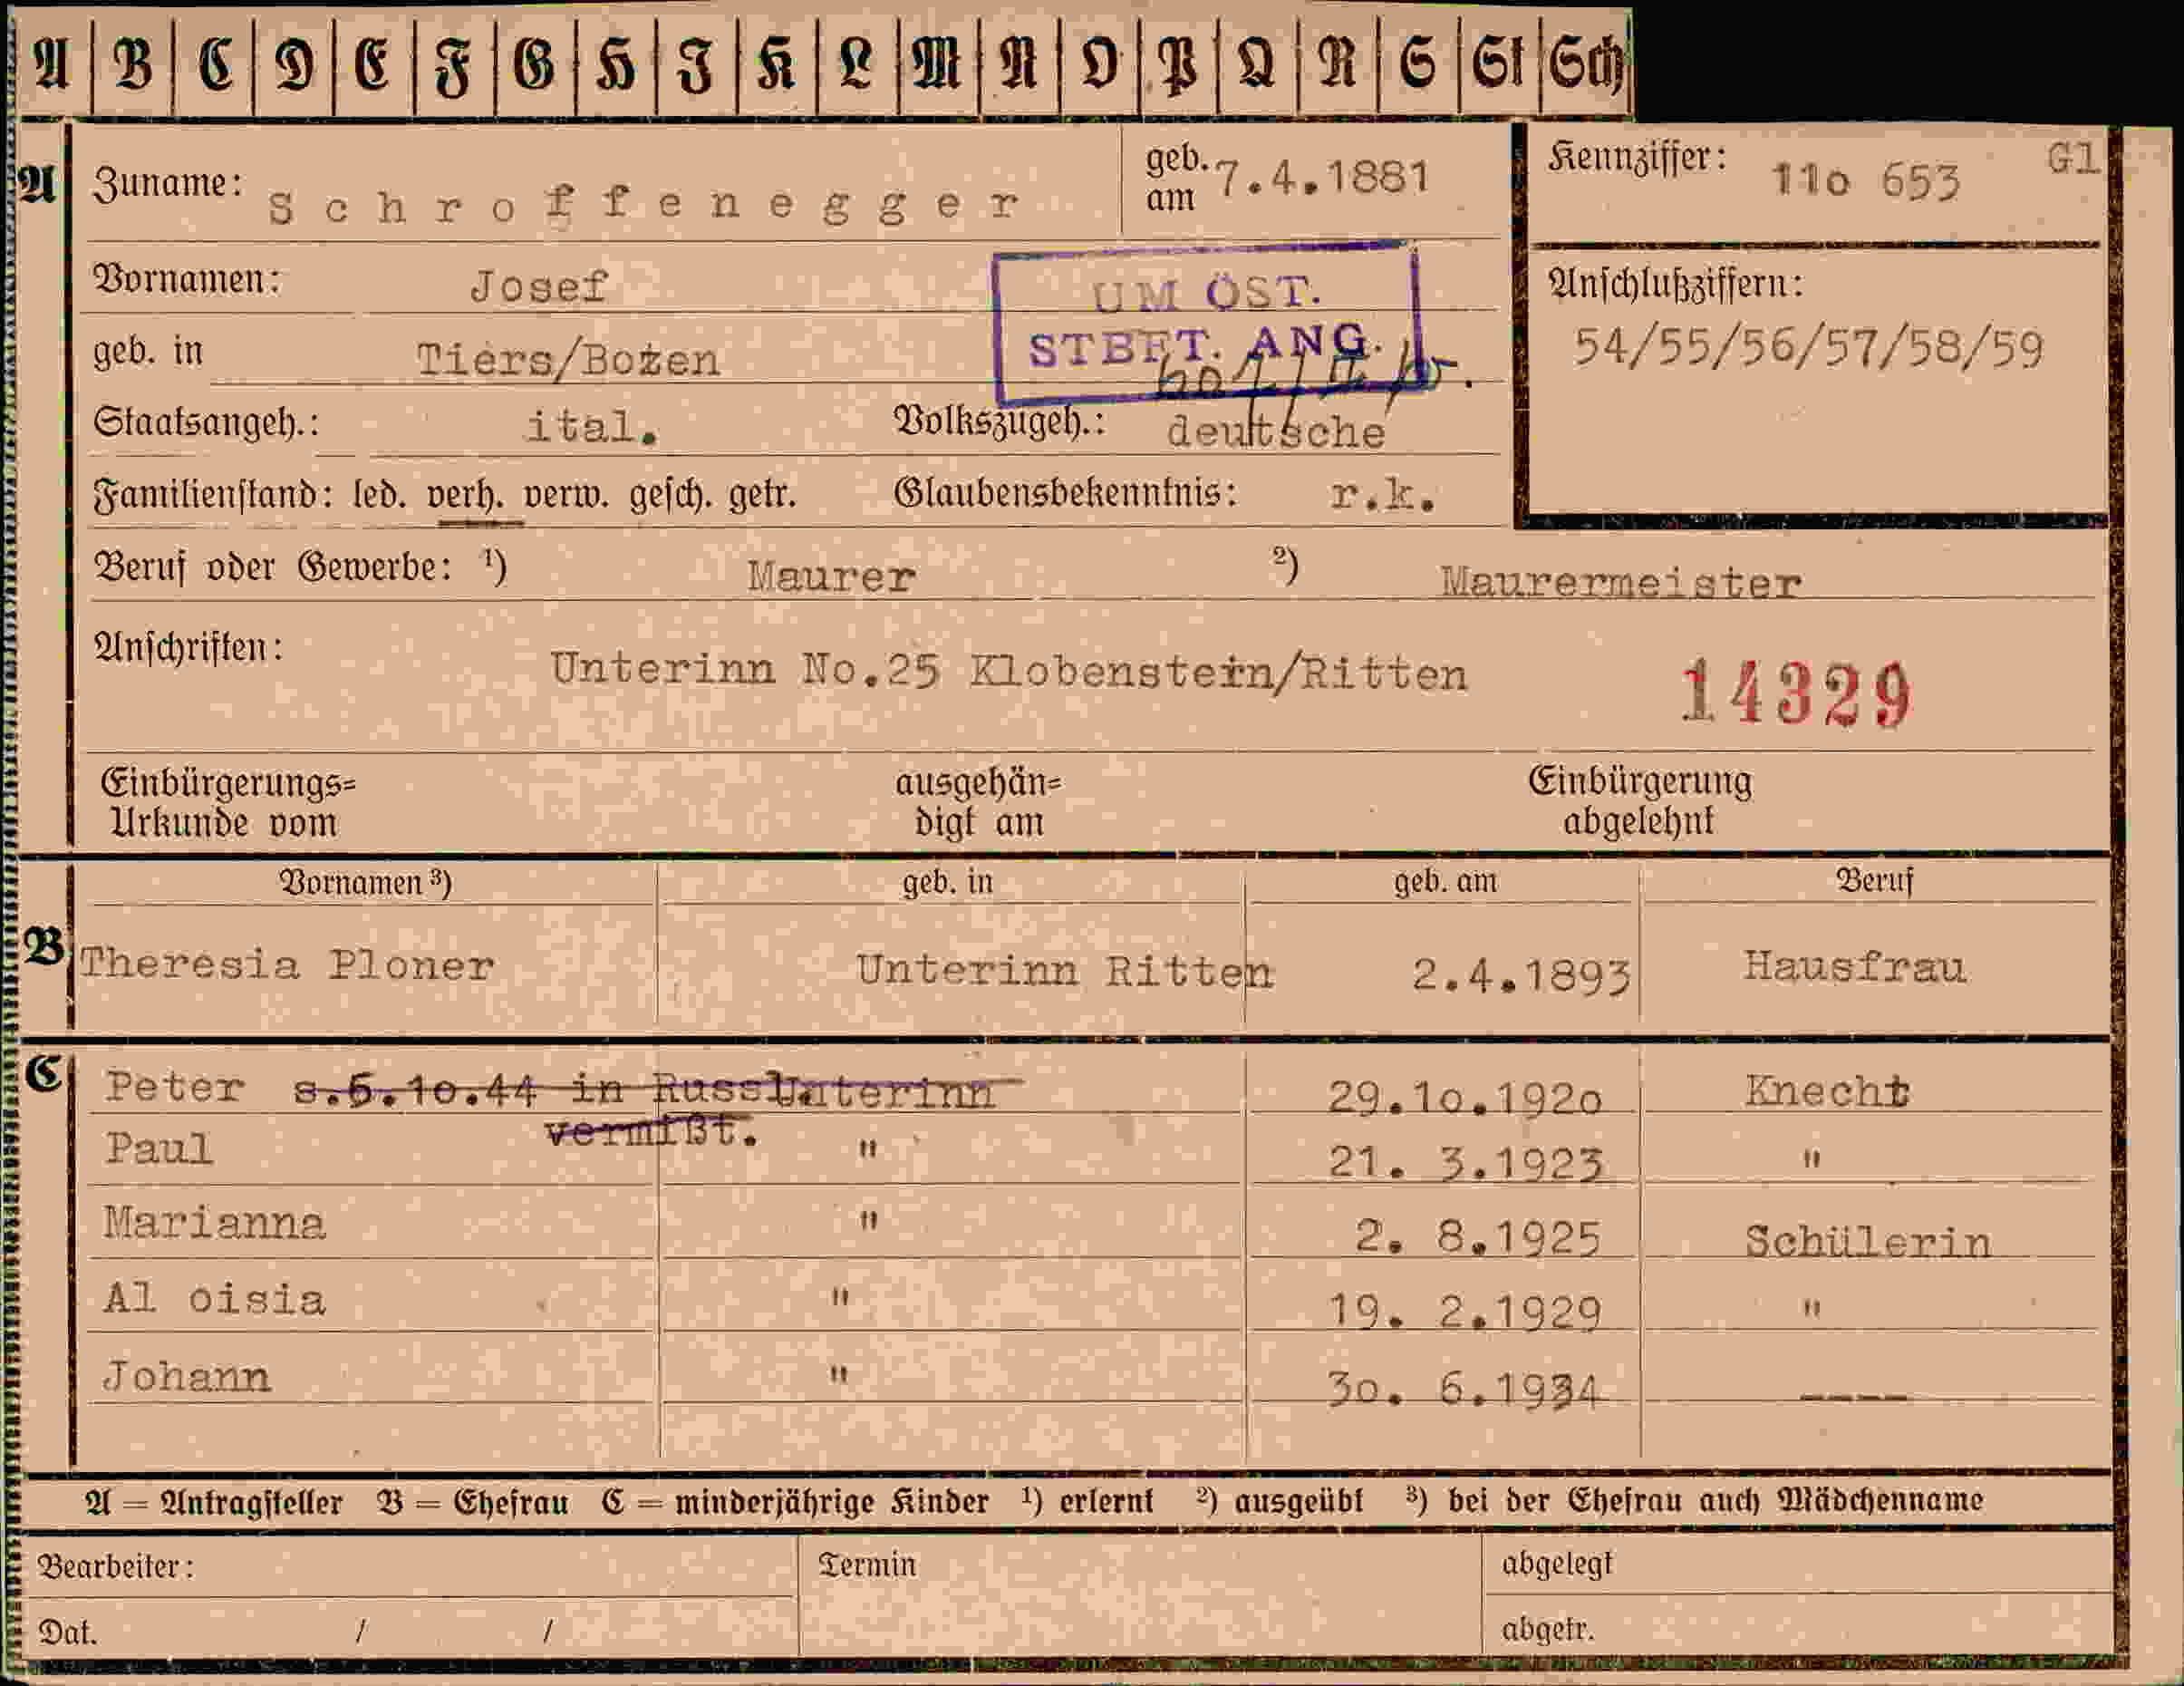 A B C D E F G H I K L M N O P Q R S St Sch
A Zuname: Schroffenegger geb. am 7.4.1881 Kennziffer: 11o 653 Gl
Vornamen: Josef UM ÖST. Anschlußziffern:
geb. in Tiers/Bozen STBET. ANG. 54/55/56/57/58/59
Staatsangeh.: ital. Volkszugeh.: deutsche
Familienstand: led. verh. verw. gesch. getr. Glaubensbekenntnis: r.k.
Beruf oder Gewerbe: 1) Maurer 2) Maurermeister
Anschriften: Unterinn No.25 Klobenstein/Ritten 14329
Einbürgerungs= ausgehän= Einbürgerung
Urkunde vom digt am abgelehnt
Vornamen 3) geb. in geb. am Beruf
B Theresia Ploner Unterinn Ritten 2.4.1893 Hausfrau
C Peter s.6.1o.44 in Russl Unterinn 29.1o.192o Knecht
vermißt.
Paul " 21. 3.1923 "
Marianna " 2. 8.1925 Schülerin
Al oisia " 19. 2.1929 "
Johann " 3o. 6.1934 ----
A = Antragsteller B = Ehefrau C = minderjährige Kinder 1) erlernt 2) ausgeübt 3) bei der Ehefrau auch Mädchenname
Bearbeiter: Termin abgelegt
Dat. / / abgetr.